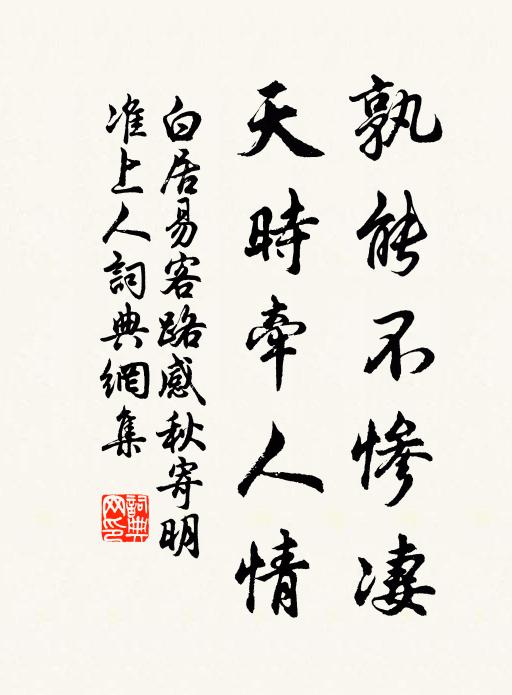 孰能不慘凄
天時牽人情
白居易客路感秋寄明
准上人詞典網集
詞典
网印